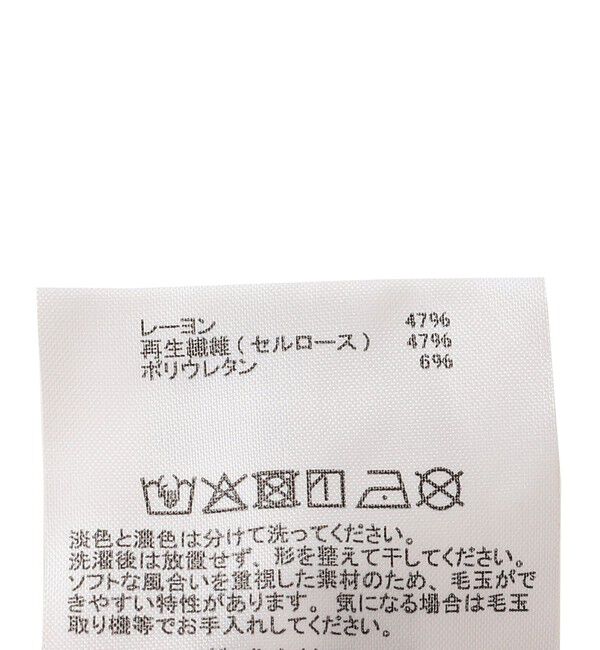 レーヨン 47%
再生繊維(セルロース) 47%
ポリウレタン 6%
淡色と濃色は分けて洗ってください。
洗濯後は放置せず、形を整えて干してください。
ソフトな風合いを重視した素材のため、毛玉がで
きやすい特性があります。気になる場合は毛玉
取り機等でお手入れしてください。